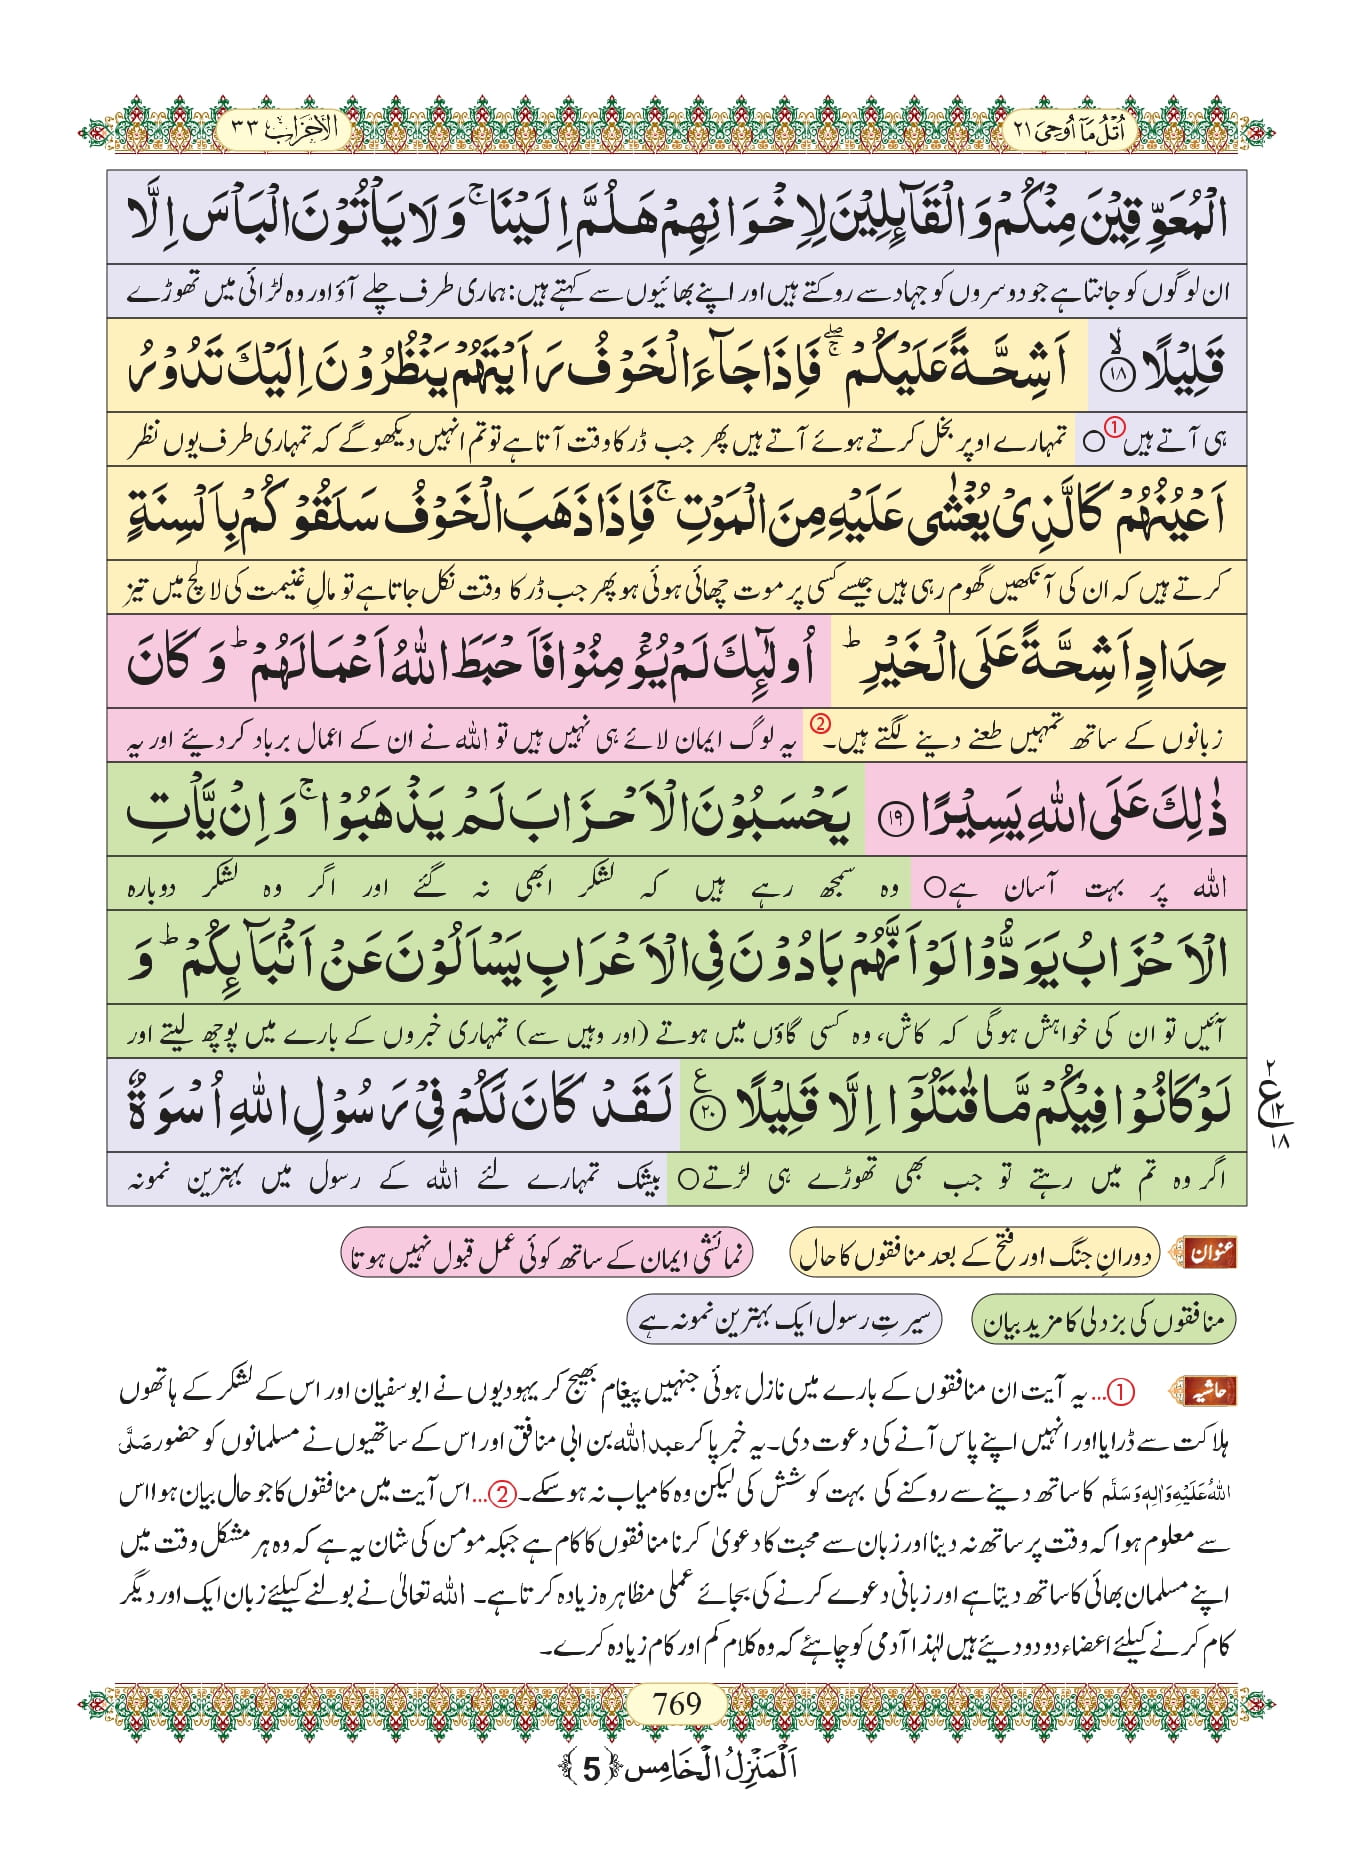 اُتْلُ مَاۤ اُوْحِیَ ۲۱
الاحزاب ۳۳
الْمُعَوِّقِیْنَ مِنْكُمْ وَ الْقَآىٕلِیْنَ لِاِخْوَانِهِمْ هَلُمَّ اِلَیْنَاۚ وَ لَا یَاْتُوْنَ الْبَاْسَ اِلَّا
ان لوگوں کو جانتا ہے جو دوسروں کو جہاد سے روکتے ہیں اور اپنے بھائیوں سے کہتے ہیں: ہماری طرف چلے آؤ اور وہ لڑائی میں تھوڑے
قَلِیْلًاۙ۝۱۸ اَشِحَّةً عَلَیْكُمْ ۚۖ فَاِذَا جَآءَ الْخَوْفُ رَاَیْتَهُمْ یَنْظُرُوْنَ اِلَیْكَ تَدُوْرُ
ہی آتے ہیں①○ تمہارے اوپر بخل کرتے ہوئے آتے ہیں پھر جب ڈر کا وقت آتا ہے تو تم انہیں دیکھو گے کہ تمہاری طرف یوں نظر
اَعْیُنُهُمْ كَالَّذِیْ یُغْشٰى عَلَیْهِ مِنَ الْمَوْتِۚ فَاِذَا ذَهَبَ الْخَوْفُ سَلَقُوْكُمْ بِاَلْسِنَةٍ
کرتے ہیں کہ ان کی آنکھیں گھوم رہی ہیں جیسے کسی پر موت چھائی ہوئی ہو پھر جب ڈر کا وقت نکل جاتا ہے تو مالِ غنیمت کی لالچ میں تیز
حِدَادٍ اَشِحَّةً عَلَى الْخَیْرِؕ اُولٰٓىٕكَ لَمْ یُؤْمِنُوْا فَاَحْبَطَ اللّٰهُ اَعْمَالَهُمْؕ وَ كَانَ
زبانوں کے ساتھ تمہیں طعنے دینے لگتے ہیں۔② یہ لوگ ایمان لائے ہی نہیں ہیں تو اللہ نے ان کے اعمال برباد کر دیئے اور یہ
ذٰلِكَ عَلَى اللّٰهِ یَسِیْرًا۝۱۹ یَحْسَبُوْنَ الْاَحْزَابَ لَمْ یَذْهَبُوْاۚ وَ اِنْ یَّاْتِ
اللہ پر بہت آسان ہے○ وہ سمجھ رہے ہیں کہ لشکر ابھی نہ گئے اور اگر وہ لشکر دوبارہ
الْاَحْزَابُ یَوَدُّوْا لَوْ اَنَّهُمْ بَادُوْنَ فِی الْاَعْرَابِ یَسْاَلُوْنَ عَنْ اَنْۢبَآىٕكُمْؕ وَ
آئیں تو ان کی خواہش ہوگی کہ کاش، وہ کسی گاؤں میں ہوتے (اور وہیں سے) تمہاری خبروں کے بارے میں پوچھ لیتے اور
لَوْ كَانُوْا فِیْكُمْ مَّا قٰتَلُوْۤا اِلَّا قَلِیْلًا۠۝۲۰ لَقَدْ كَانَ لَكُمْ فِیْ رَسُوْلِ اللّٰهِ اُسْوَةٌ
۲ ع ۱۲ ۱۸
اگر وہ تم میں رہتے تو جب بھی تھوڑے ہی لڑتے○ بیشک تمہارے لئے اللہ کے رسول میں بہترین نمونہ
عنوان دورانِ جنگ اور فتح کے بعد منافقوں کا حال نمائشی ایمان کے ساتھ کوئی عمل قبول نہیں ہوتا
منافقوں کی بزدلی کا مزید بیان سیرتِ رسول ایک بہترین نمونہ ہے
حاشیہ ①... یہ آیت ان منافقوں کے بارے میں نازل ہوئی جنہیں پیغام بھیج کر یہودیوں نے ابوسفیان اور اس کے لشکر کے ہاتھوں
ہلاکت سے ڈرایا اور انہیں اپنے پاس آنے کی دعوت دی۔ یہ خبر پا کر عبد اللہ بن ابی منافق اور اس کے ساتھیوں نے مسلمانوں کو حضور صَلَّی
اللہُ عَلَیْہِ وَاٰلِہٖ وَسَلَّم کا ساتھ دینے سے روکنے کی بہت کوشش کی لیکن وہ کامیاب نہ ہو سکے۔ ②... اس آیت میں منافقوں کا جو حال بیان ہوا اس
سے معلوم ہوا کہ وقت پر ساتھ نہ دینا اور زبان سے محبت کا دعویٰ کرنا منافقوں کا کام ہے جبکہ مومن کی شان یہ ہے کہ وہ ہر مشکل وقت میں
اپنے مسلمان بھائی کا ساتھ دیتا ہے اور زبانی دعوے کرنے کی بجائے عملی مظاہرہ زیادہ کرتا ہے۔ اللہ تعالیٰ نے بولنے کیلئے زبان ایک اور دیگر
کام کرنے کیلئے اعضاء دو دو دیئے ہیں لہٰذا آدمی کو چاہئے کہ وہ کلام کم اور کام زیادہ کرے۔
769
اَلْمَنْزِلُ الْخَامِس ﴿5﴾